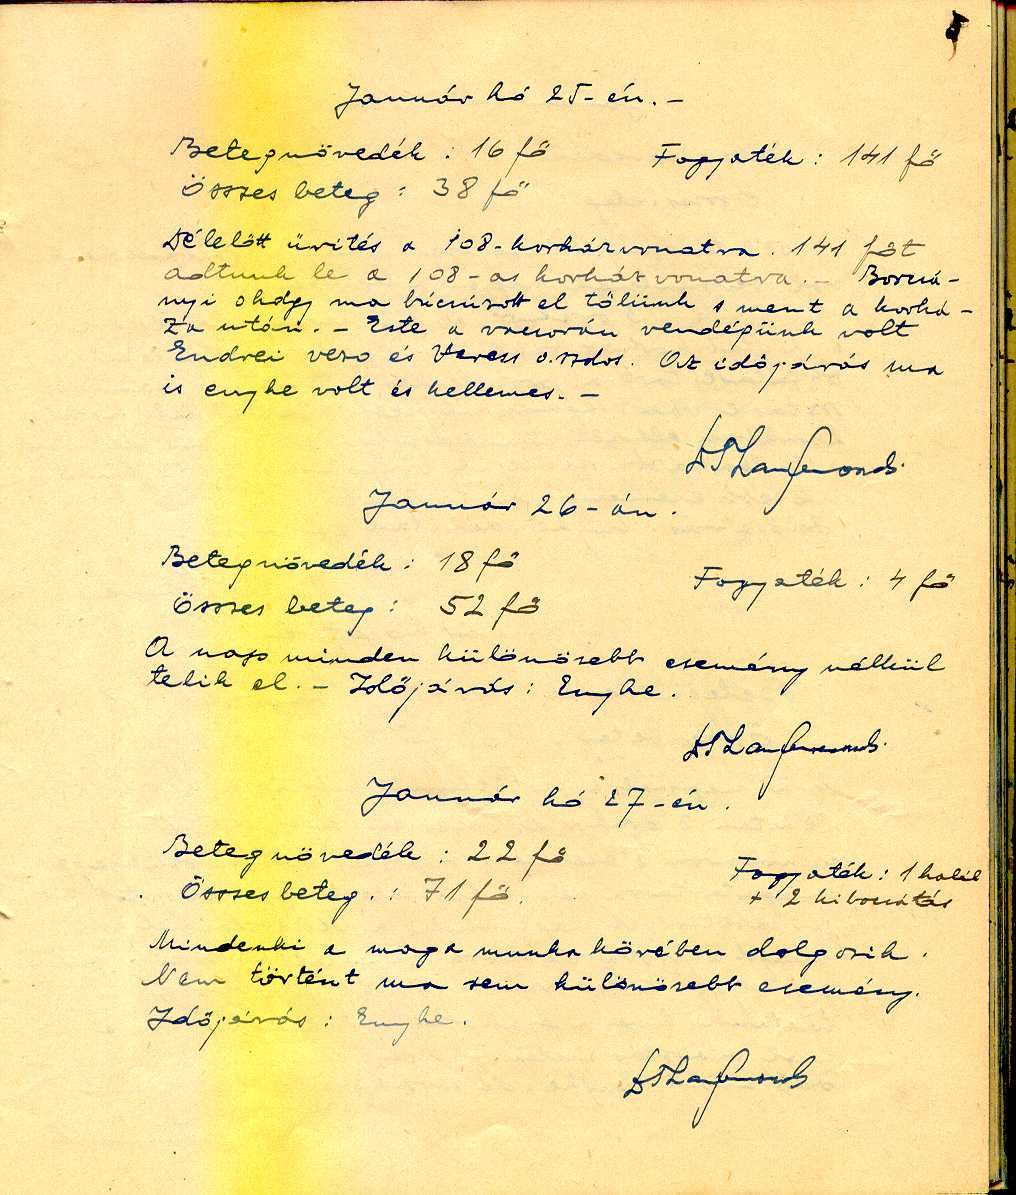 Január hó 25-én.-
Betegnövedék : 16 fő Fogyaték : 141 fő
Összes beteg : 38 fő
Délelőtt ürítés a 108-korházvonatra. 141 főt
adtunk le a 108-as korházvonatra.- Borcsá-
nyi ohdgy ma búcsúzott el tőlünk s ment a korhá-
za után.- Este a vacsorán vendégünk volt
Endrei vezo és Veress o.szdos. Az időjárás ma
is enyhe volt és kellemes.-
Január 26-án.
Betegnövedék : 18 fő Fogyaték : 4 fő
Összes beteg : 52 fő
A nap minden különösebb esemény nélkül
telik el.- Időjárás : Enyhe.
Január hó 27-én.
Betegnövedék : 22 fő Fogyaték : 1 halál
Összes beteg. : 71 fő. + 2 kibocsátás
Mindenki a maga munkakörében dolgozik.
Nem történt ma sem különösebb esemény.
Időjárás : Enyhe.